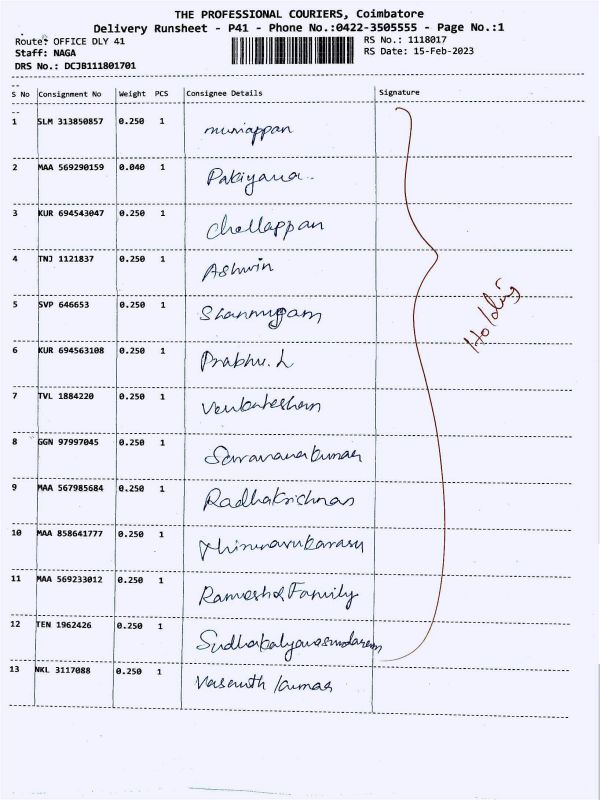 THE PROFESSIONAL COURIERS, Coimbatore
Delivery Runsheet - P41 - Phone No.:0422-3505555 - Page No.:1
Route: OFFICE DLY 41
RS No.: 1118017
Staff: NAGA
RS Date: 15-Feb-2023
DRS No.: DCJB111801701
S No Consignment No Weight PCS Consignee Details Signature
1 SLM 313850857 0.250 1 muniappan
2 MAA 569290159 0.040 1 Pakiyana
3 KUR 694543047 0.250 1 Chellappan
4 TNJ 1121837 0.250 1 Ashwin
5 SVP 646653 0.250 1 Shanmugam
Holding
6 KUR 694563108 0.250 1 Prabhu. L
7 TVL 1884220 0.250 1 Venkateshan
8 GGN 97997045 0.250 1 Saravanakumar
9 MAA 567985684 0.250 1 Radhakrishnan
10 MAA 858641777 0.250 1 Thirunavukarasu
11 MAA 569233012 0.250 1 Ramesh & Family
12 TEN 1962426 0.250 1 Sudhakalyanasundaram
13 NKL 3117088 0.250 1 Vasanth kumar